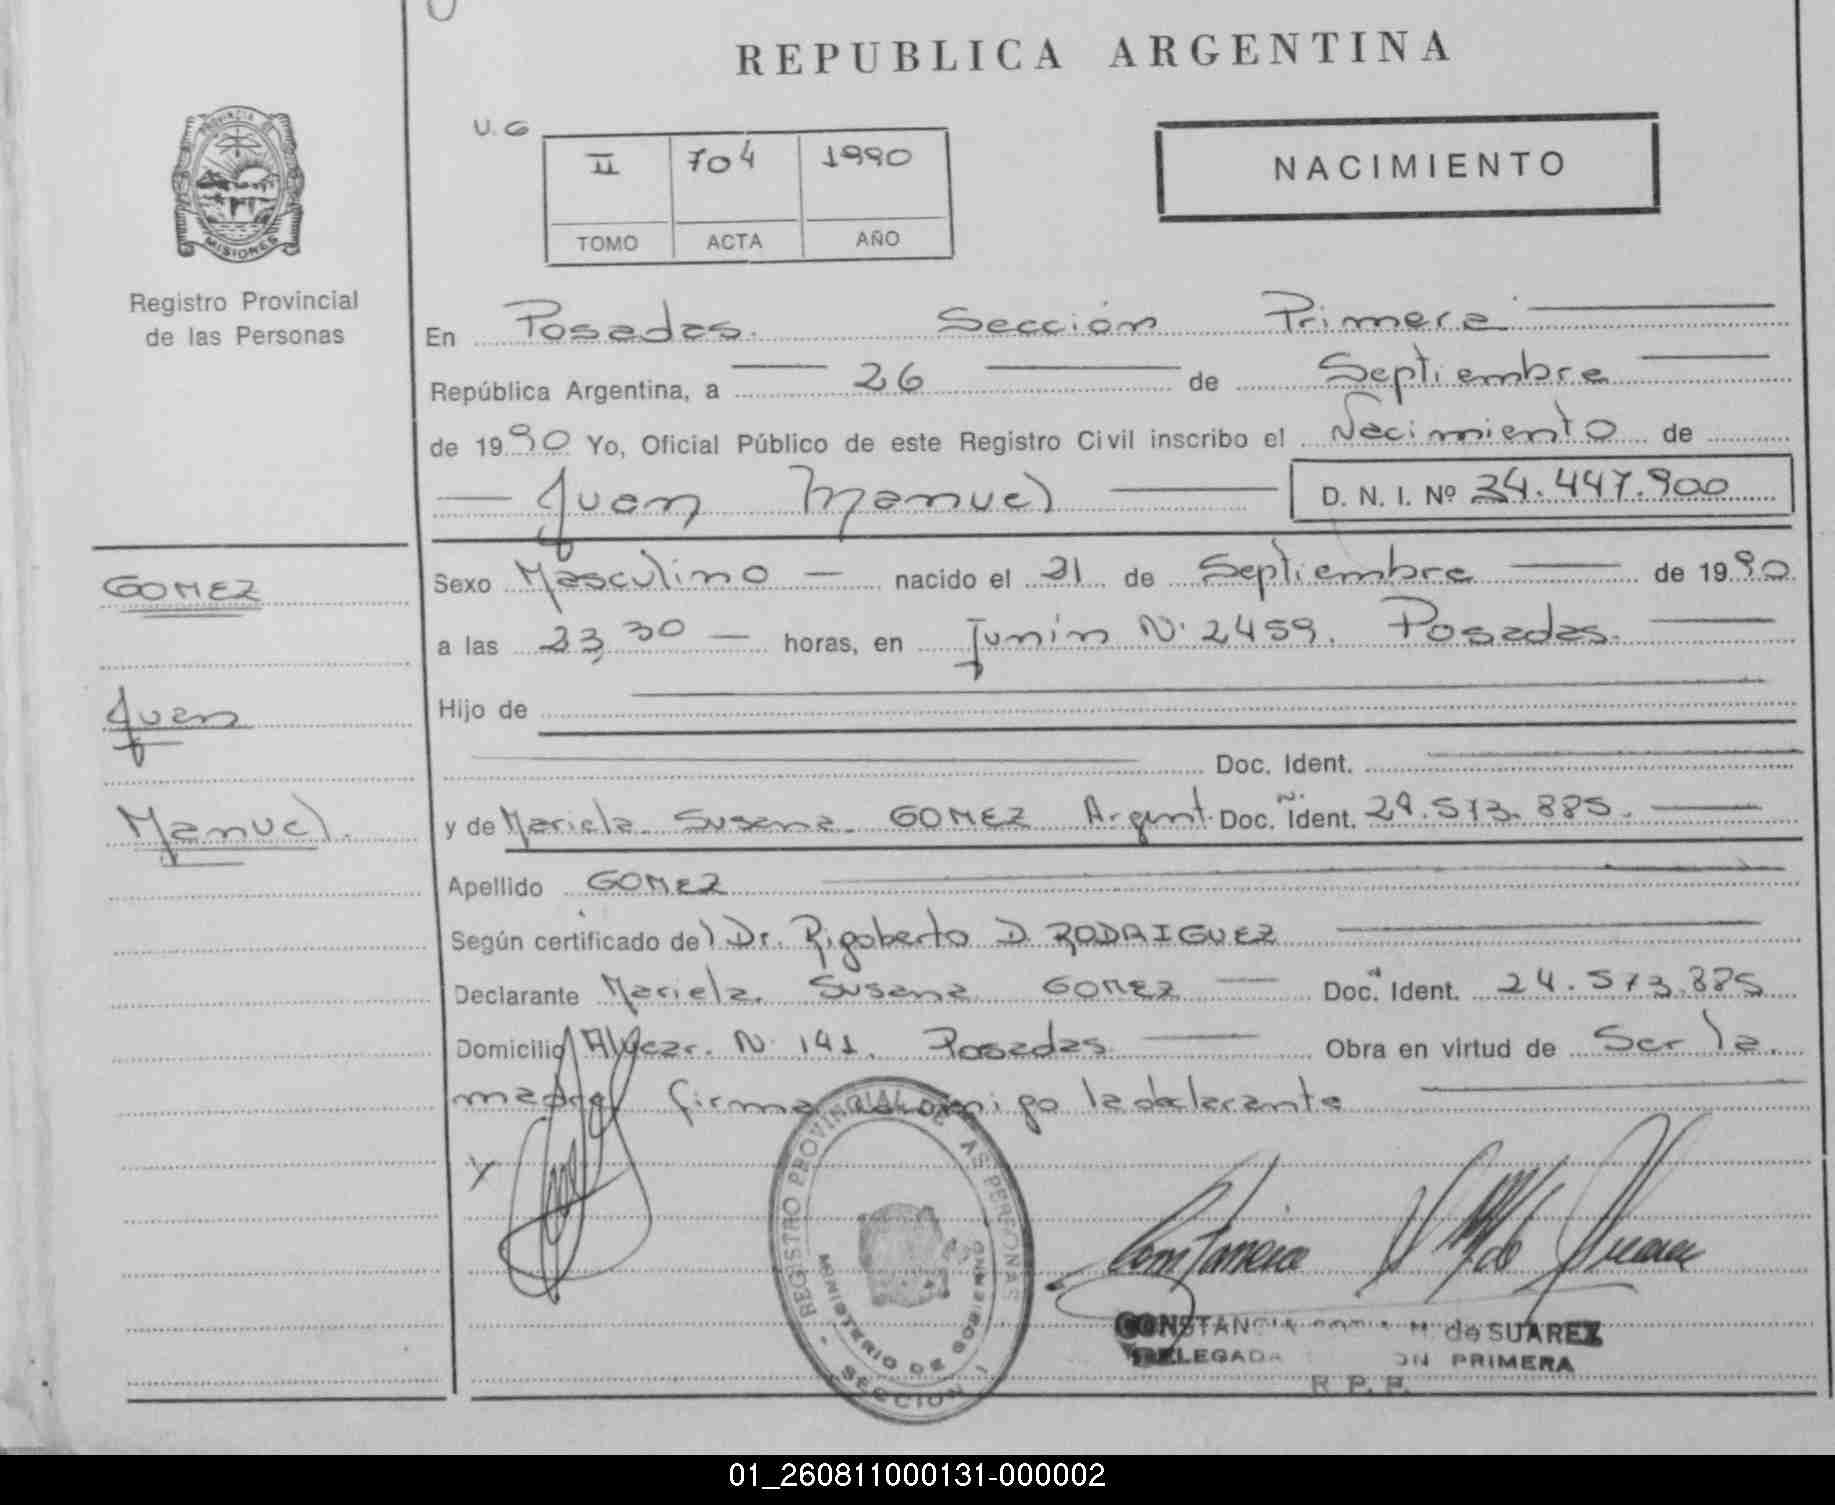 REPUBLICA ARGENTINA
PROVINCIA DE
MISIONES
Registro Provincial
de las Personas
U. G
II 704 1990
TOMO ACTA AÑO
NACIMIENTO
En Posadas. Sección Primera
República Argentina, a 26 de Septiembre
de 1990 Yo, Oficial Público de este Registro Civil inscribo el Nacimiento de
Juan Manuel D. N. I. Nº 34.447.900
GOMEZ
Juan
Manuel.
Sexo Masculino nacido el 21 de Septiembre de 1990
a las 23,30 horas, en Junín N. 2459. Posadas.
Hijo de
Doc. Ident.
y de Mariela Susana GOMEZ Argent. Doc. Ident. 24.573.885.
Apellido GOMEZ
Según certificado del Dr. Rigoberto D RODRIGUEZ
Declarante Mariela Susana GOMEZ Doc. Ident. 24.573.885
Domicilio Alvear. N. 141. Posadas Obra en virtud de Ser la
madre firma conmigo la declarante
X
REGISTRO PROVINCIAL DE LAS PERSONAS
MINISTERIO DE GOBIERNO
SECCION 1
CONSTANCIA M. de SUAREZ
DELEGADA PRIMERA
R. P. P.
01_260811000131-000002